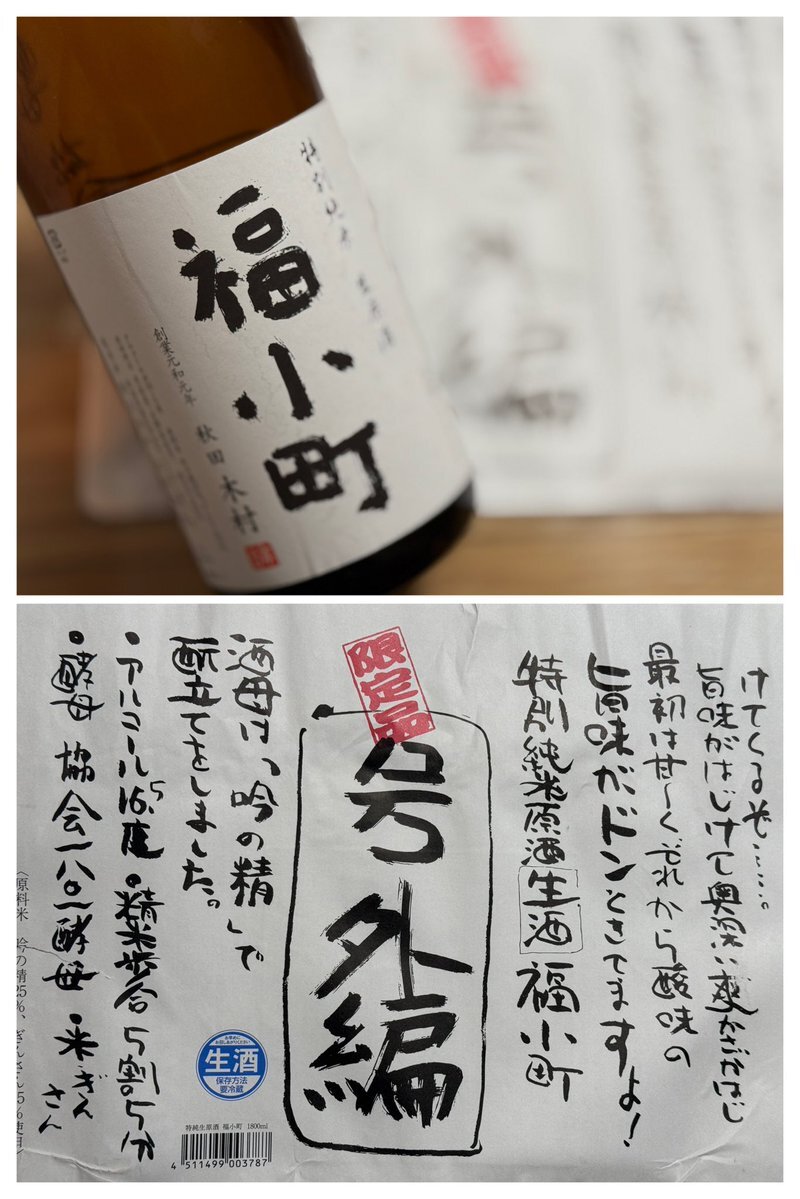 特別純米 生原酒
福小町
創業元和元年
秋田 木村
けてくるぞ……。
旨味がはじけて奥深い爽かさがはじ
最初は甘〜くそれから酸味の
旨味がドンときてますよ!
特別純米原酒 生酒 福小町
限定品
号外編
酒母は、「吟の精」で
酛立てをしました。
・アルコール16.5度 ・精米歩合 5割5分
・酵母 協会一八〇一酵母 ・米ぎんさん
お早めにお召しあがりください
生酒
保存方法
要冷蔵
特純生原酒 福小町 1800ml
4 511499 003787